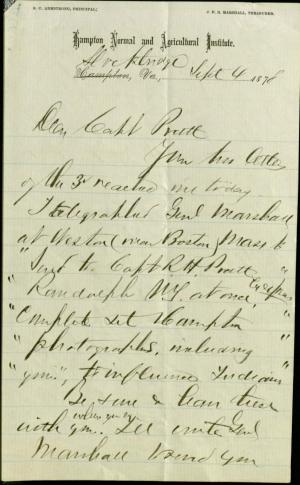 S. C. ARMSTRONG, PRINCIPAL.
J. F. B. MARSHALL, TREASURER.
Hampton Normal and Agricultural Institute.
Stockbridge
Hampton, Va., Sept 4 1878
Dear Capt Pratt
Your two letters
of the 3d received me today
I telegraphed Genl Marshall
at Weston (near Boston) Mass to
"Send to Capt R H Pratt
"Randolph N.Y. at once, Express
"Complete set Hampton
"photographs, including
"gym", to influence Indians"
Be sure & have these
with you. I'll write Genl
Marshall to send you